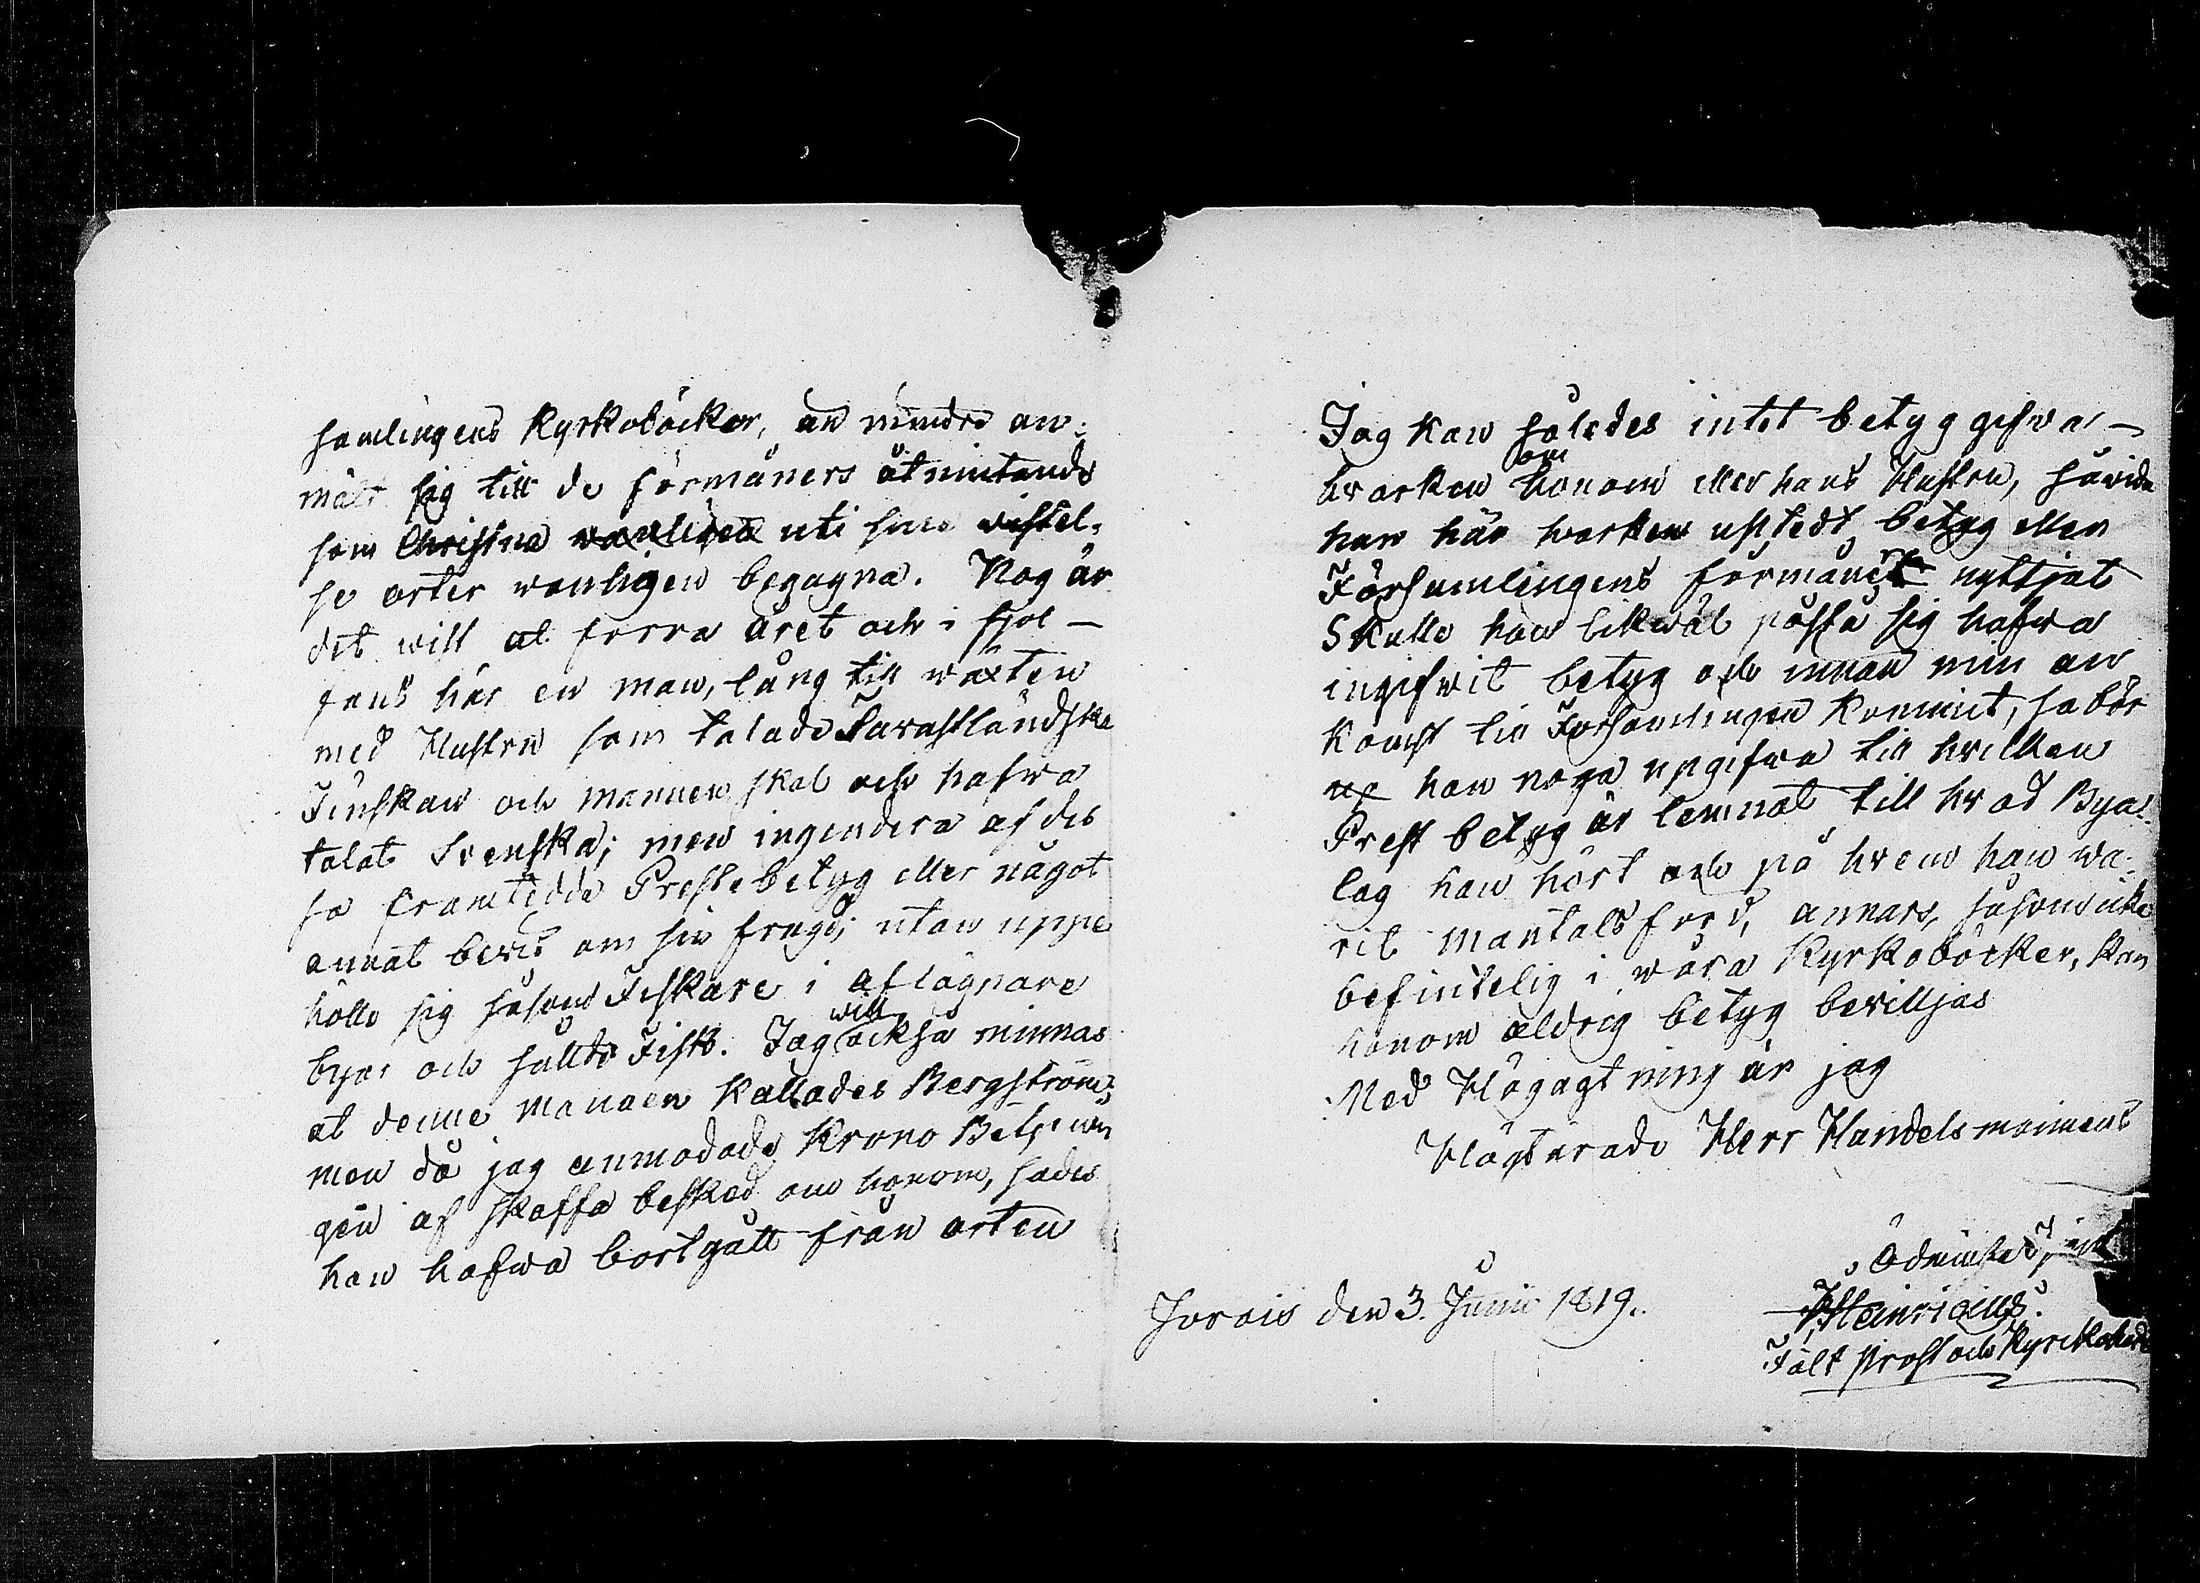 samlingens Kyrkoböcker, än mindre an-
mält sig till de förmåners åtniutande
som Christna wanligen uti sine wistel-
se orter wanligen begagna. Nog är
det wist at förra året och i fjol
fans här en man, lång till wäxten
med Hustru som talade Tavastländska
Finskan och mannen skal och hafwa
talat Svenska; men ingendera af des-
sa framtedde Prestebetyg eller något
annat bevis om sin fregd; utan uppe
hölls sig såsom Fiskare i aflägnare
byar och sållde Fisk. Jag will också minnas
at denne mannen kallades Bergström;
men då jag anmodade Krono Betjenin
gen at skaffa besked om honom, sades
han hafwa bortgått från orten
Jag kan således intet betyg gifva
hvarken om honom eller hans Hustru, såvida
han här hvarken upstedt betyg eller
Församlingens förmåner nyttjat
Skulle han likwäl påstå sig hafva
ingifwit betyg och innan min an
komst till Församlingen kommit, så bör
han noga upgifva till hvilken
Prest betyg är lemnat till hvad Bya-
lag han hört och på hvem han wa-
rit mantalsförd, annars, såsom icke
befintelig i wåra Kyrkoböcker, kan
honom aldrig betyg bevilljas
Med Högagtning är jag
Högtärade Herr Handelsmannens
ödmjukaste
Jorois den 3. Junii 1819.
Heinricius.
Fält Prost och Kyrckoherde